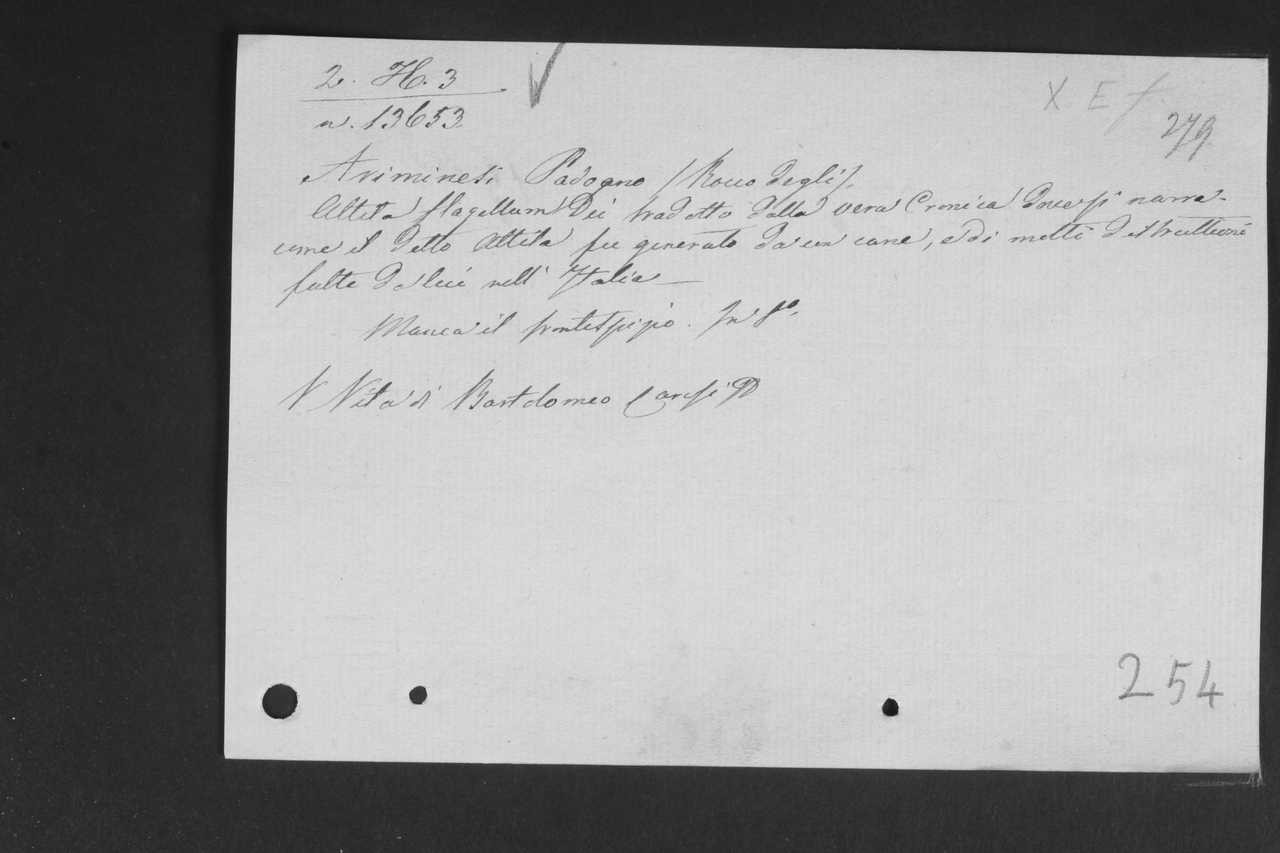 2. H. 3
n. 13653
X E f
279
Ariminesi Padoano (Rocco degli).
Attila flagellum Dei tradotto dalla vera Cronica dove si narra
come il detto Attila fu generato da un cane, e di molte destruttioni
fatte da lui nell' Italia —
Manca il frontespizio. In 8°.
V Vita di Bartolomeo
254